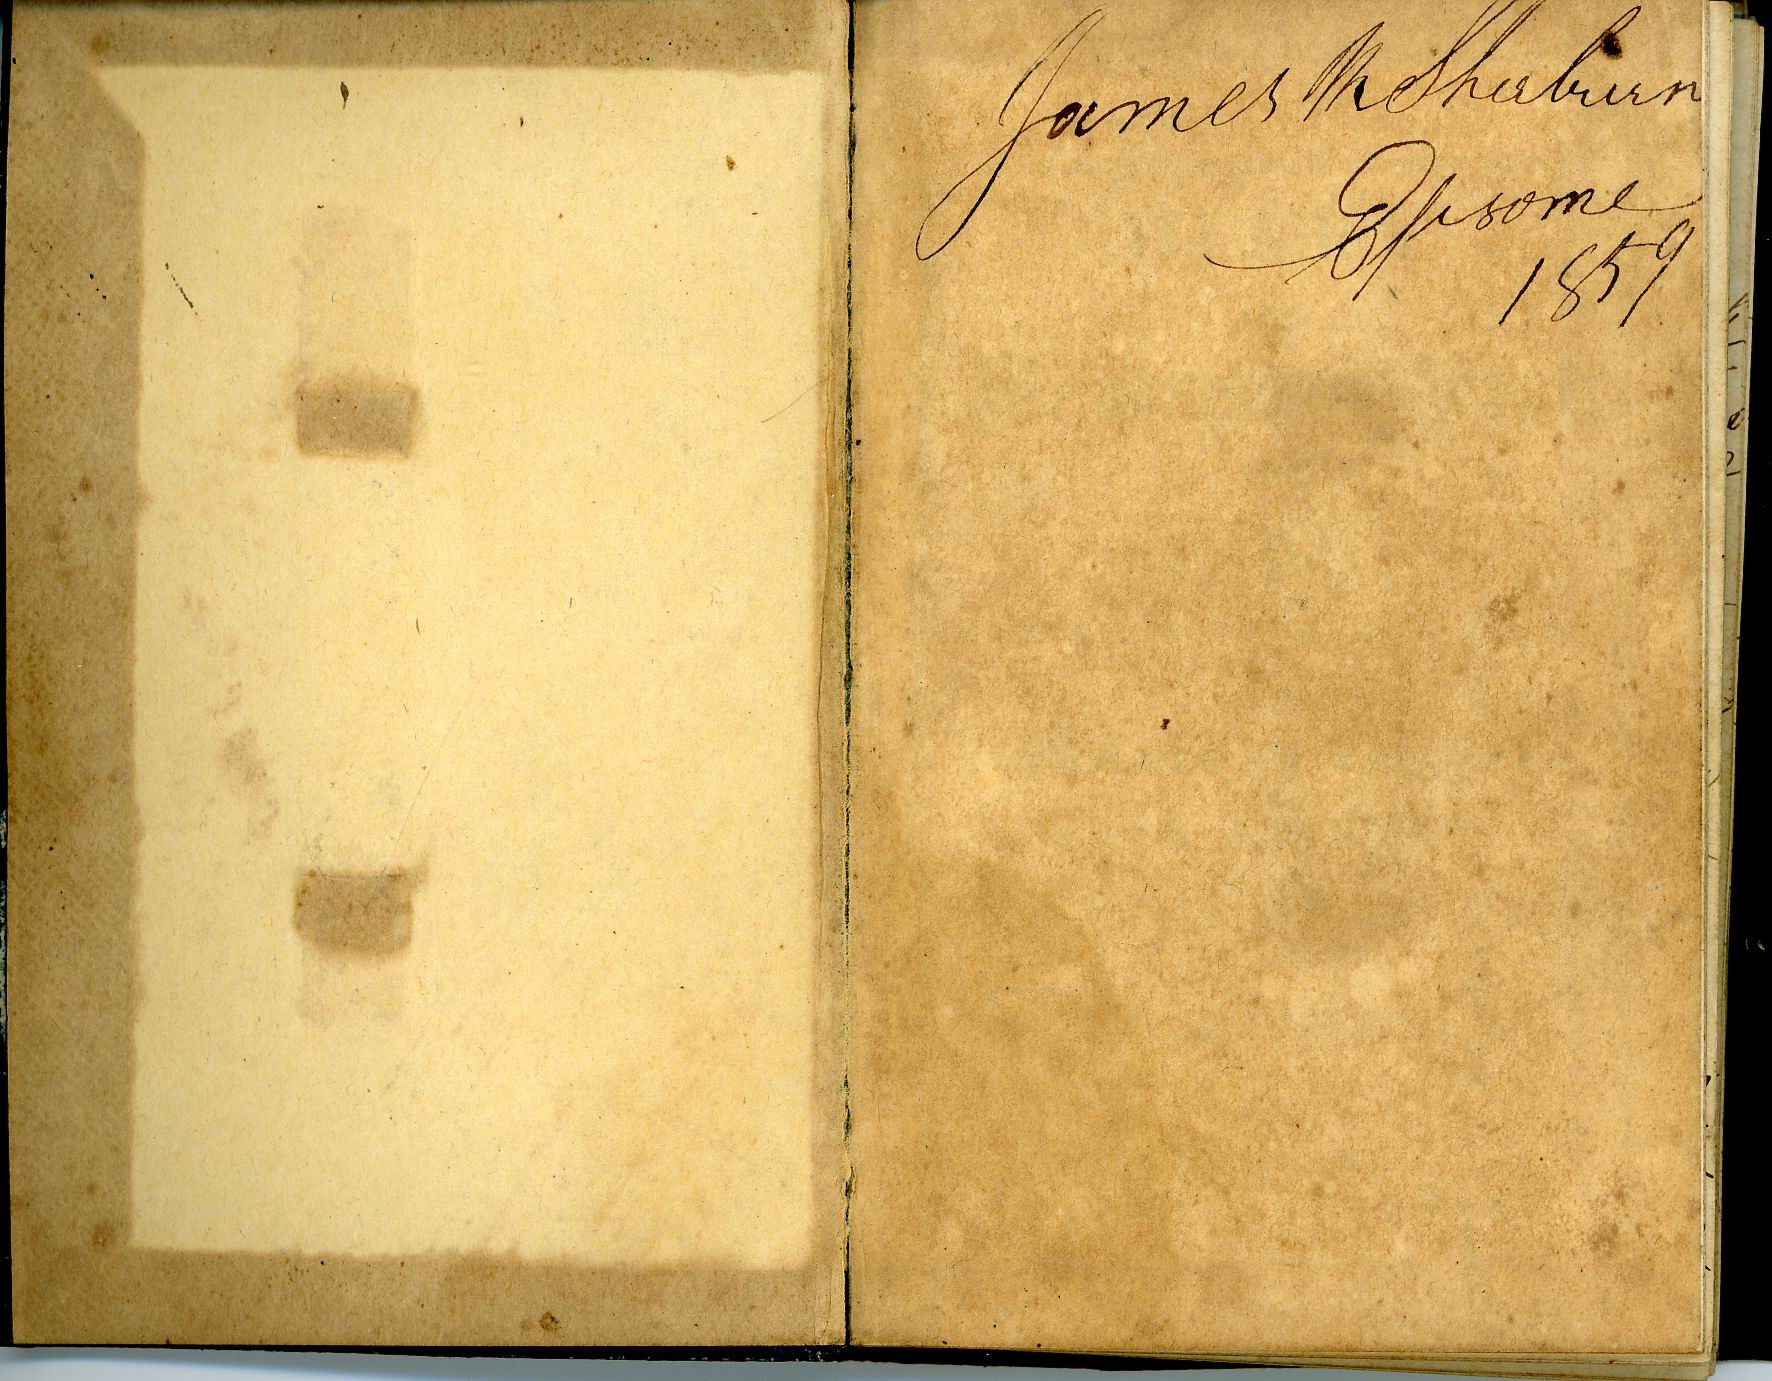 James M Sherburn
Epsome
1859